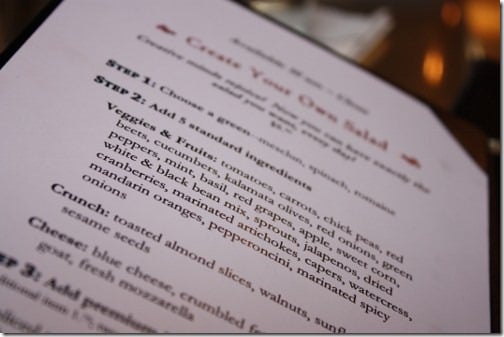 Create Your Own Salad
Creative minds rejoice! Now you can have exactly the
salad you want, every day!
STEP 1: Choose a green–mesclun, spinach, romaine
STEP 2: Add 5 standard ingredients
Veggies & Fruits: tomatoes, carrots, chick peas, red
beets, cucumbers, kalamata olives, red onions, green
peppers, mint, basil, red grapes, apple, sweet corn,
white & black bean mix, sprouts, jalapenos, dried
cranberries, marinated artichokes, capers, watercress,
mandarin oranges, pepperoncini, marinated spicy
onions
Crunch: toasted almond slices, walnuts, sunfl
sesame seeds
Cheese: blue cheese, crumbled f
goat, fresh mozzarella
STEP 3: Add premium